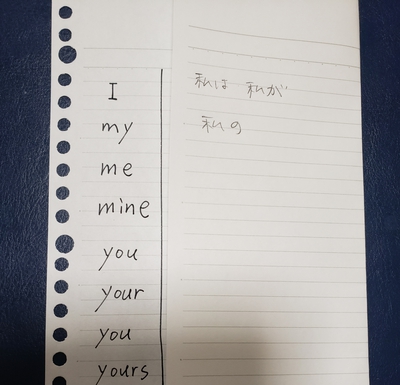 I 私は 私が
my 私の
me
mine
you
your
you
yours